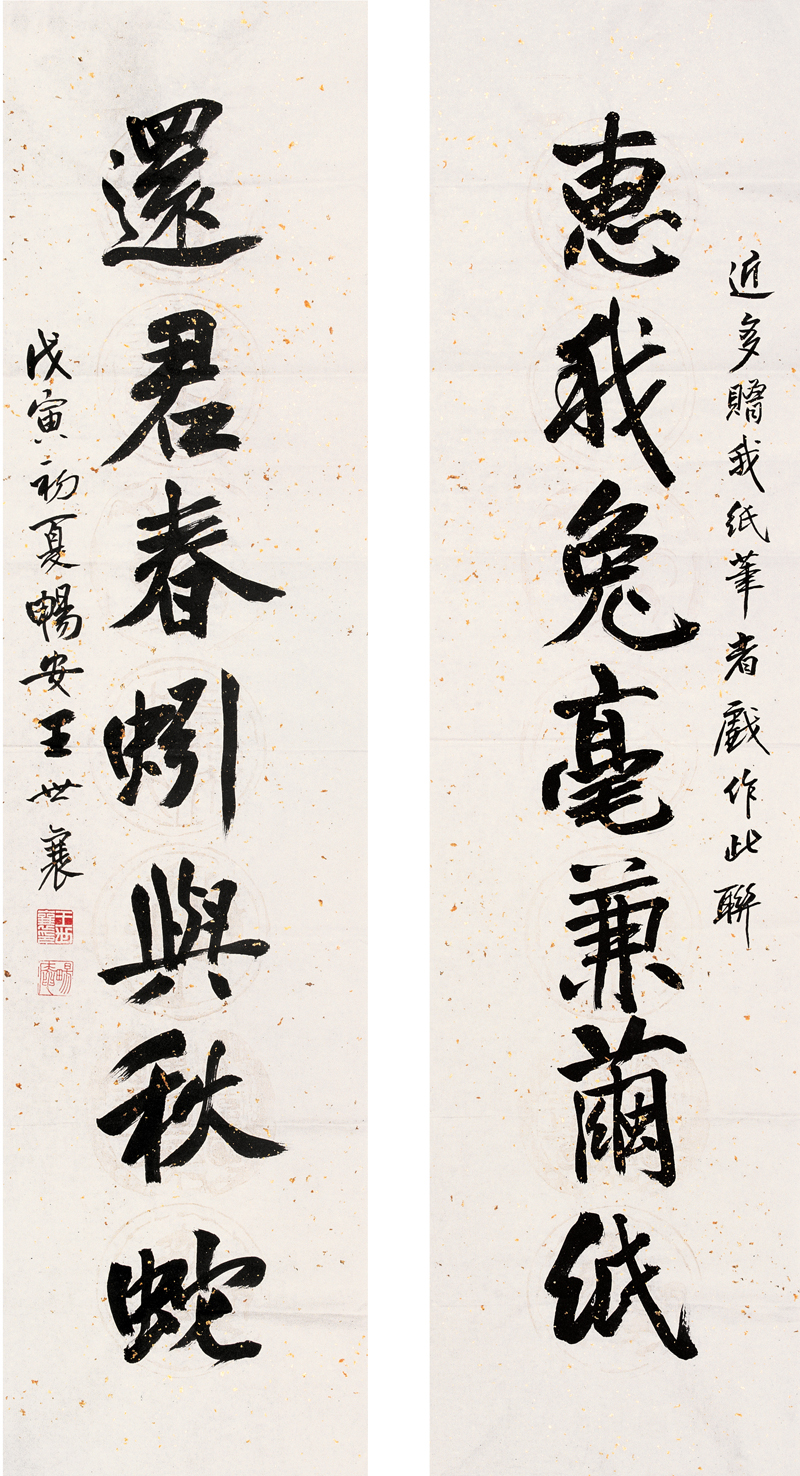 近多贈我紙筆者戲作此聯
惠我兔毫兼繭紙
還君春蚓與秋蛇
戊寅初夏暢安王世襄
王世襄璽
暢安